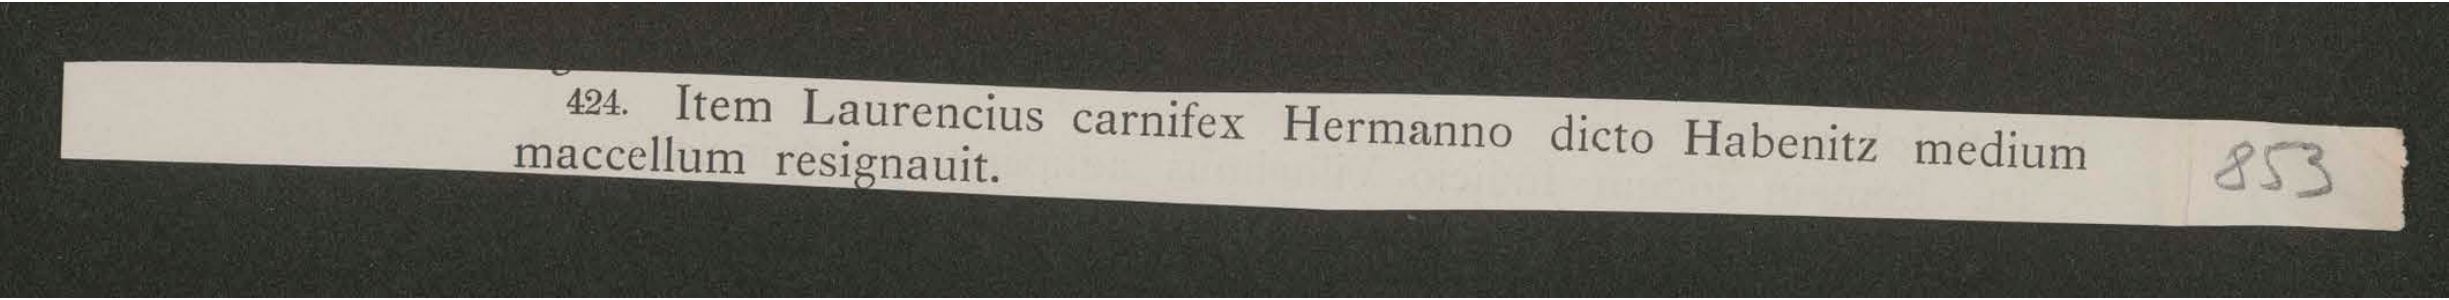 424. Item Laurencius carnifex Hermanno dicto Habenitz medium
maccellum resignauit.
853